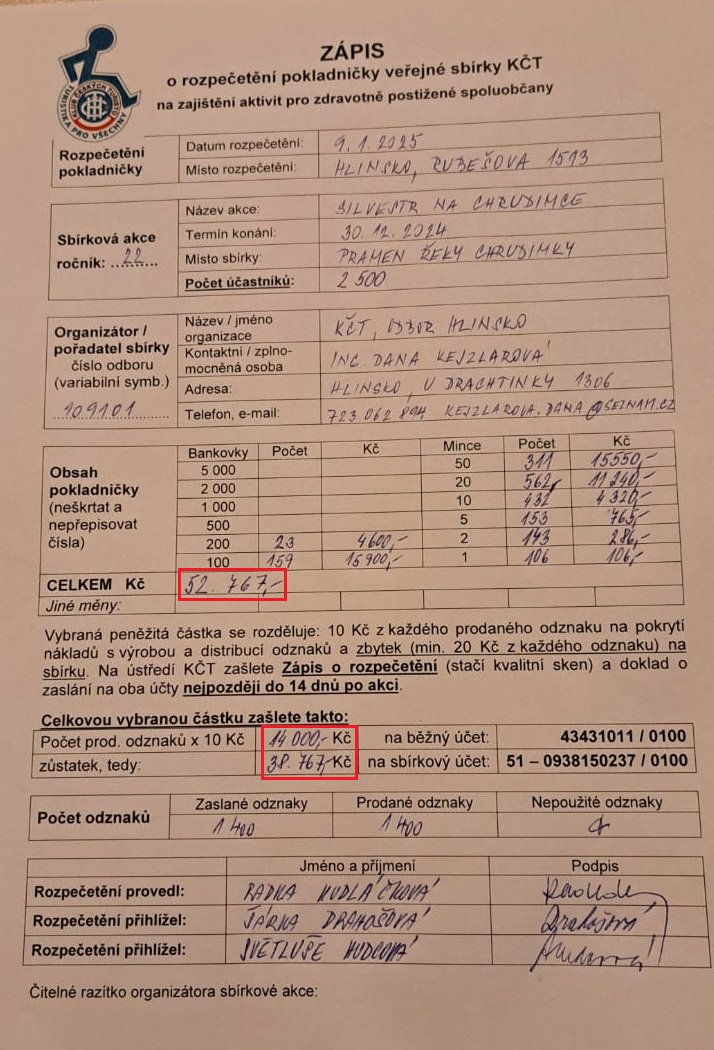 ZÁPIS
o rozpečetění pokladničky veřejné sbírky KČT
na zajištění aktivit pro zdravotně postižené spoluobčany
KLUB ČESKÝCH TURISTŮ
TURISTIKA PRO VŠECHNY
Rozpečetění pokladničky
Datum rozpečetění: 9.1.2025
Místo rozpečetění: HLINSKO, RUBEŠOVA 1513
Sbírková akce
ročník: 22
Název akce: SILVESTR NA CHRUDIMCE
Termín konání: 30.12.2024
Místo sbírky: PRAMEN ŘEKY CHRUDIMKY
Počet účastníků: 2 500
Organizátor / pořadatel sbírky
číslo odboru
(variabilní symb.)
109101
Název / jméno organizace KČT, ODBOR HLINSKO
Kontaktní / zplno-mocněná osoba ING. DANA KEJZLAROVÁ
Adresa: HLINSKO, U DRACHTINKY 1306
Telefon, e-mail: 723 062 894 KEJZLAROVA.DANA@SEZNAM.CZ
Obsah pokladničky
(neškrtat a nepřepisovat čísla)
Bankovky Počet Kč Mince Počet Kč
5 000 50 311 15550,-
2 000 20 562 11 240,-
1 000 10 432 4 320,-
500 5 153 765,-
200 23 4600,- 2 143 286,-
100 159 15 900,- 1 106 106,-
CELKEM Kč 52.767,-
Jiné měny:
Vybraná peněžitá částka se rozděluje: 10 Kč z každého prodaného odznaku na pokrytí
nákladů s výrobou a distribucí odznaků a zbytek (min. 20 Kč z každého odznaku) na
sbírku. Na ústředí KČT zašlete Zápis o rozpečetění (stačí kvalitní sken) a doklad o
zaslání na oba účty nejpozději do 14 dnů po akci.
Celkovou vybranou částku zašlete takto:
Počet prod. odznaků x 10 Kč 14 000,- Kč na běžný účet: 43431011 / 0100
zůstatek, tedy: 38.767,- Kč na sbírkový účet: 51 – 0938150237 / 0100
Počet odznaků
Zaslané odznaky Prodané odznaky Nepoužité odznaky
1 400 1 400
Jméno a příjmení Podpis
Rozpečetění provedl: RADKA KUDLÁČKOVÁ
Rozpečetění přihlížel: ŠÁRKA DRAHOŠOVÁ Drahošová
Rozpečetění přihlížel: SVĚTLUŠE HUDCOVÁ
Čitelné razítko organizátora sbírkové akce: